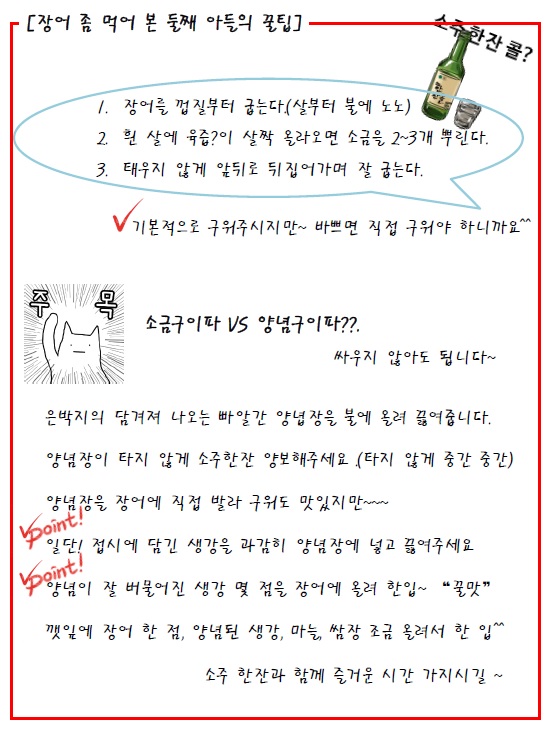 [장어 좀 먹어 본 둘째 아들의 꿀팁]
소주한잔 콜?
1. 장어를 껍질부터 굽는다.(살부터 불에 노노)
2. 흰 살에 육즙?이 살짝 올라오면 소금을 2~3개 뿌린다.
3. 태우지 않게 앞뒤로 뒤집어가며 잘 굽는다.
기본적으로 구워주시지만~ 바쁘면 직접 구워야 하니까요^^
주 목
소금구이파 VS 양념구이파??.
싸우지 않아도 됩니다~
은박지의 담겨져 나오는 빠알간 양념장을 불에 올려 끓여줍니다.
양념장이 타지 않게 소주한잔 양보해주세요.(타지 않게 중간 중간)
양념장을 장어에 직접 발라 구워도 맛있지만~~~
Point!
일단! 접시에 담긴 생강을 과감히 양념장에 넣고 끓여주세요
Point!
양념이 잘 버물어진 생강 몇 점을 장어에 올려 한입~ “꿀맛”
깻잎에 장어 한 점, 양념된 생강, 마늘, 쌈장 조금 올려서 한 입^^
소주 한잔과 함께 즐거운 시간 가지시길 ~